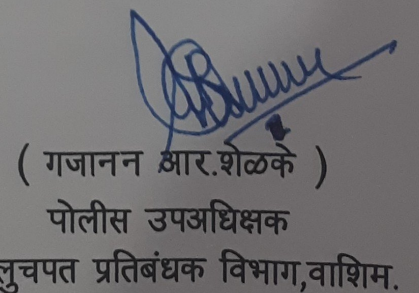 ( गजानन आर.शेळके )
पोलीस उपअधिक्षक
लुचपत प्रतिबंधक विभाग,वाशिम.